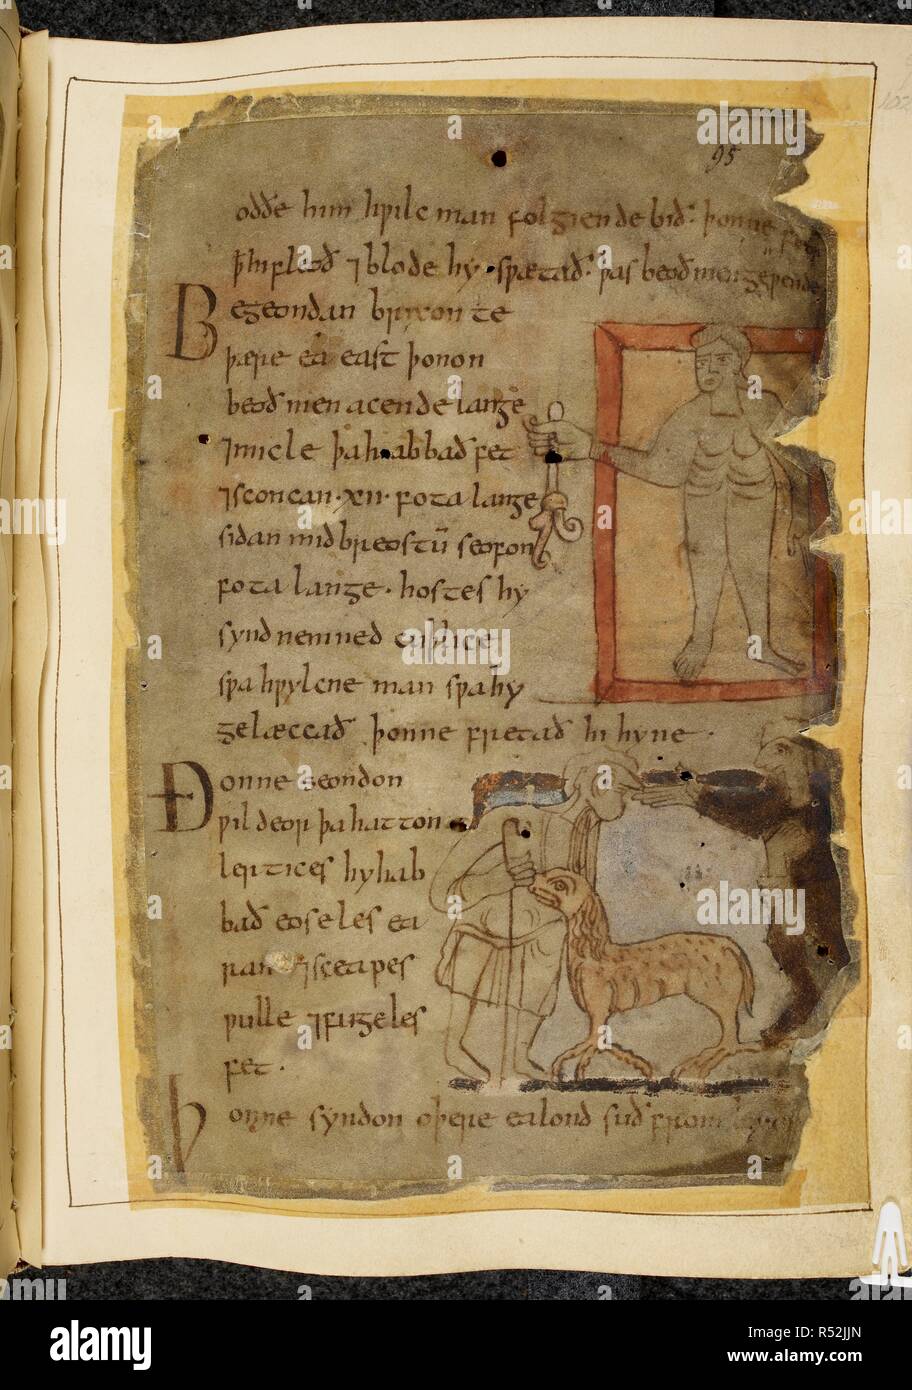 95
oððe him hƿilc man folgiende bið· þonne
ꝥ hi fleoð ⁊ blode hy sƿætað· þas beoð men geƿende
Begeondan brixonte
þære ea east þonon
beoð men acende lange
⁊ micle þa habbað fet
⁊ sconcan ·xii· fota lange
sidan mid breostū seofon
fota lange· hostes hy
synd nemned cuþlice
sƿa hƿylcne man sƿa hy
gelæccað þonne fretað hi hyne·
Ðonne seondon
ƿildeor þa hatton
lertices hy hab
bað eoseles ea
ran ⁊ sceapes
ƿulle ⁊ fugeles
fet·
Þonne syndon oþere ealond suð from
alamy
Image ID: R52JJN
www.alamy.com